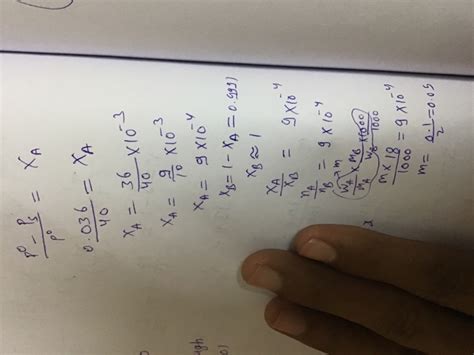 (p° - p_s)/p° = x_A
0.036/40 = x_A
x_A = 36/40 × 10^-3
x_A = 9/10 × 10^-3
x_A = 9 × 10^-4
x_B = 1 - x_A = 0.9991
x_B ≈ 1
x_A/x_B = 9 × 10^-4
n_A/n_B = 9 × 10^-4
w_A/m_A × m_B/w_B × 1000/1000
→ m
m × 18/1000 = 9 × 10^-4
m = 0.1/2 = 0.05